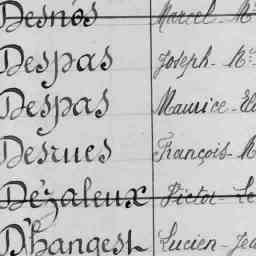 Desnos Marcel-
Despas Joseph-
Despas Maurice-
Desrues François-
Dézaleux Victor-
D'hangest Lucien-